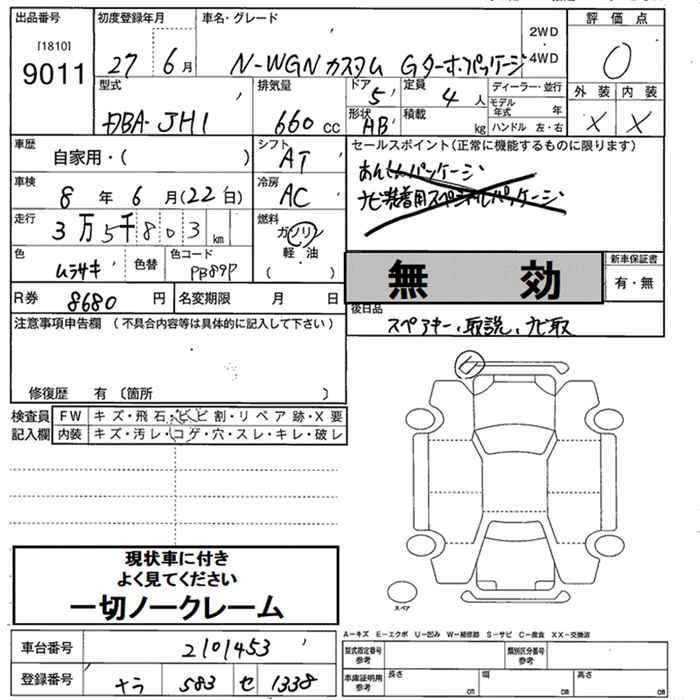 出品番号 初度登録年月 車名・グレード 評価点
[1810]
9011 27 6月 N-WGN カスタム Gターボ・パッケージ 2WD 4WD 0
型式 排気量 ドア 5 定員 4人 ディーラー・並行 外装 内装
DBA-JH1 660cc 形状 HB 積載 kg モデル年式 年 ハンドル 左・右 × ×
車歴 自家用・( ) シフト AT セールスポイント(正常に機能するものに限ります)
車検 8年6月(22日) 冷房 AC あんしんパッケージ
ナビ装着用スペシャルパッケージ
走行 3万5千803km 燃料 ガソリン 軽油 ( )
色 ムラサキ 色替 色コード PB89P 無効 新車保証書 有・無
R券 8680円 名変期限 月 日 後日品
スペアキー、取説、ナビ取
注意事項申告欄(不具合内容等は具体的に記入して下さい)
修復歴 有〔箇所 〕
検査員 FW キズ・飛石・ヒビ割・リペア跡・X要
記入欄 内装 キズ・汚レ・コゲ・穴・スレ・キレ・破レ
現状車に付き
よく見てください
一切ノークレーム
スペア
A-キズ E-エクボ U-凹み W-補修跡 S-サビ C-腐食 XX-交換済
車台番号 2101453 型式指定番号 参考 類別区分番号 参考
登録番号 ナラ 583 セ 1338 車庫証明用 参考 長さ cm 幅 cm 高さ cm